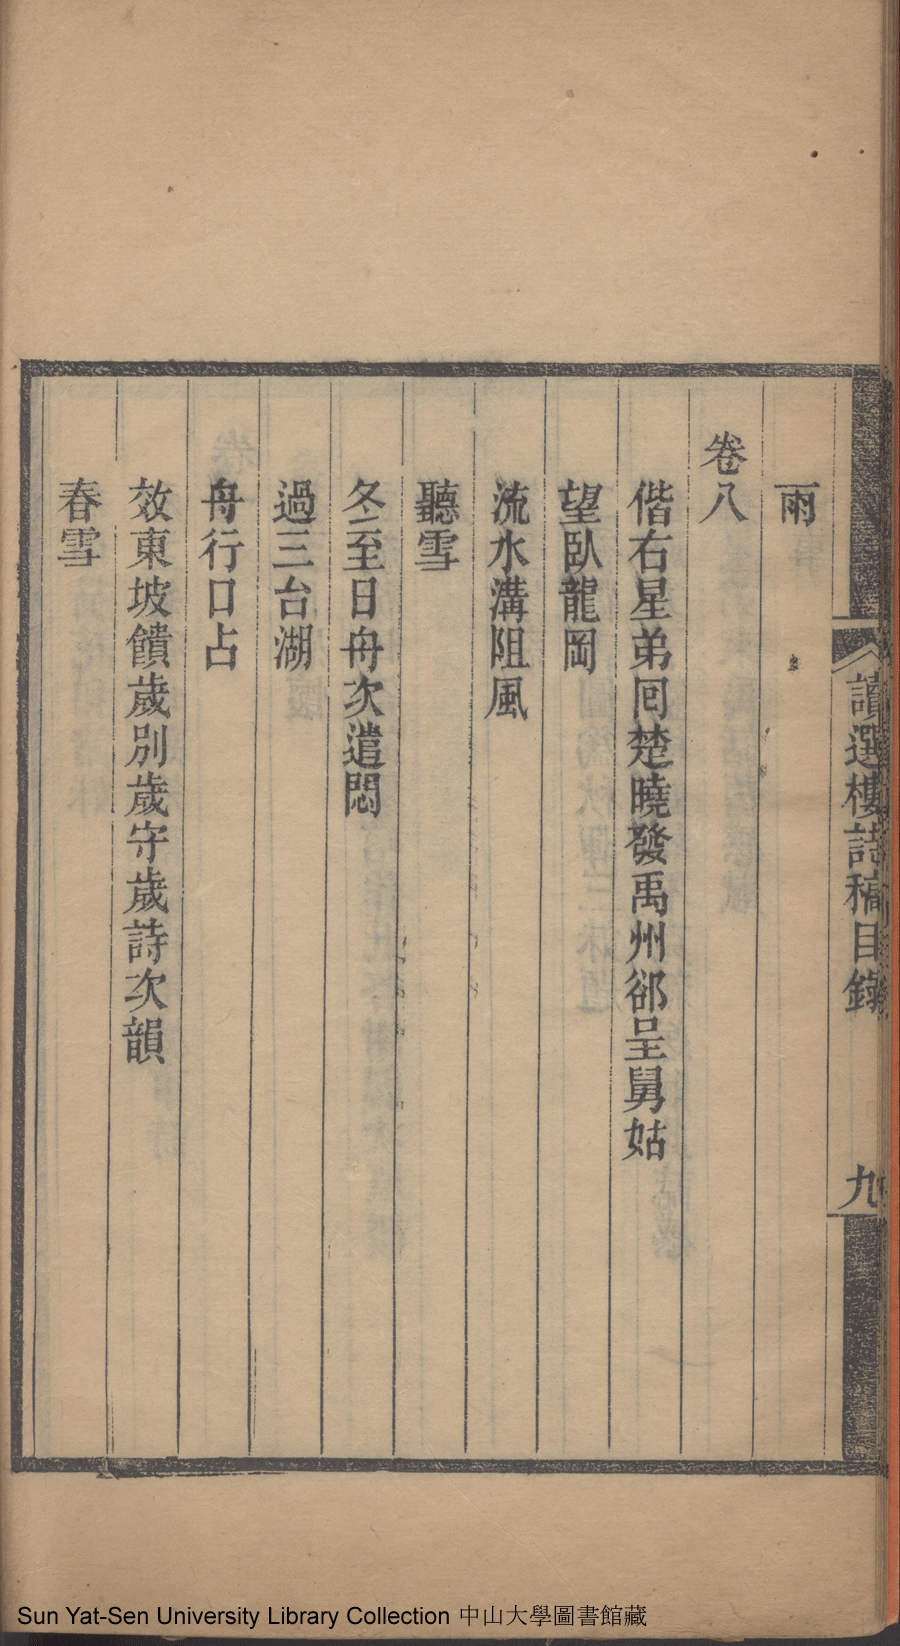 讀選樓詩稿目錄
九
雨
卷八
偕右星弟囘楚曉發禹州郤呈舅姑
望臥龍岡
流水溝阻風
聽雪
冬至日舟次遣悶
過三台湖
舟行口占
效東坡饋歲別歲守歲詩次韻
春雪
Sun Yat-Sen University Library Collection 中山大學圖書館藏